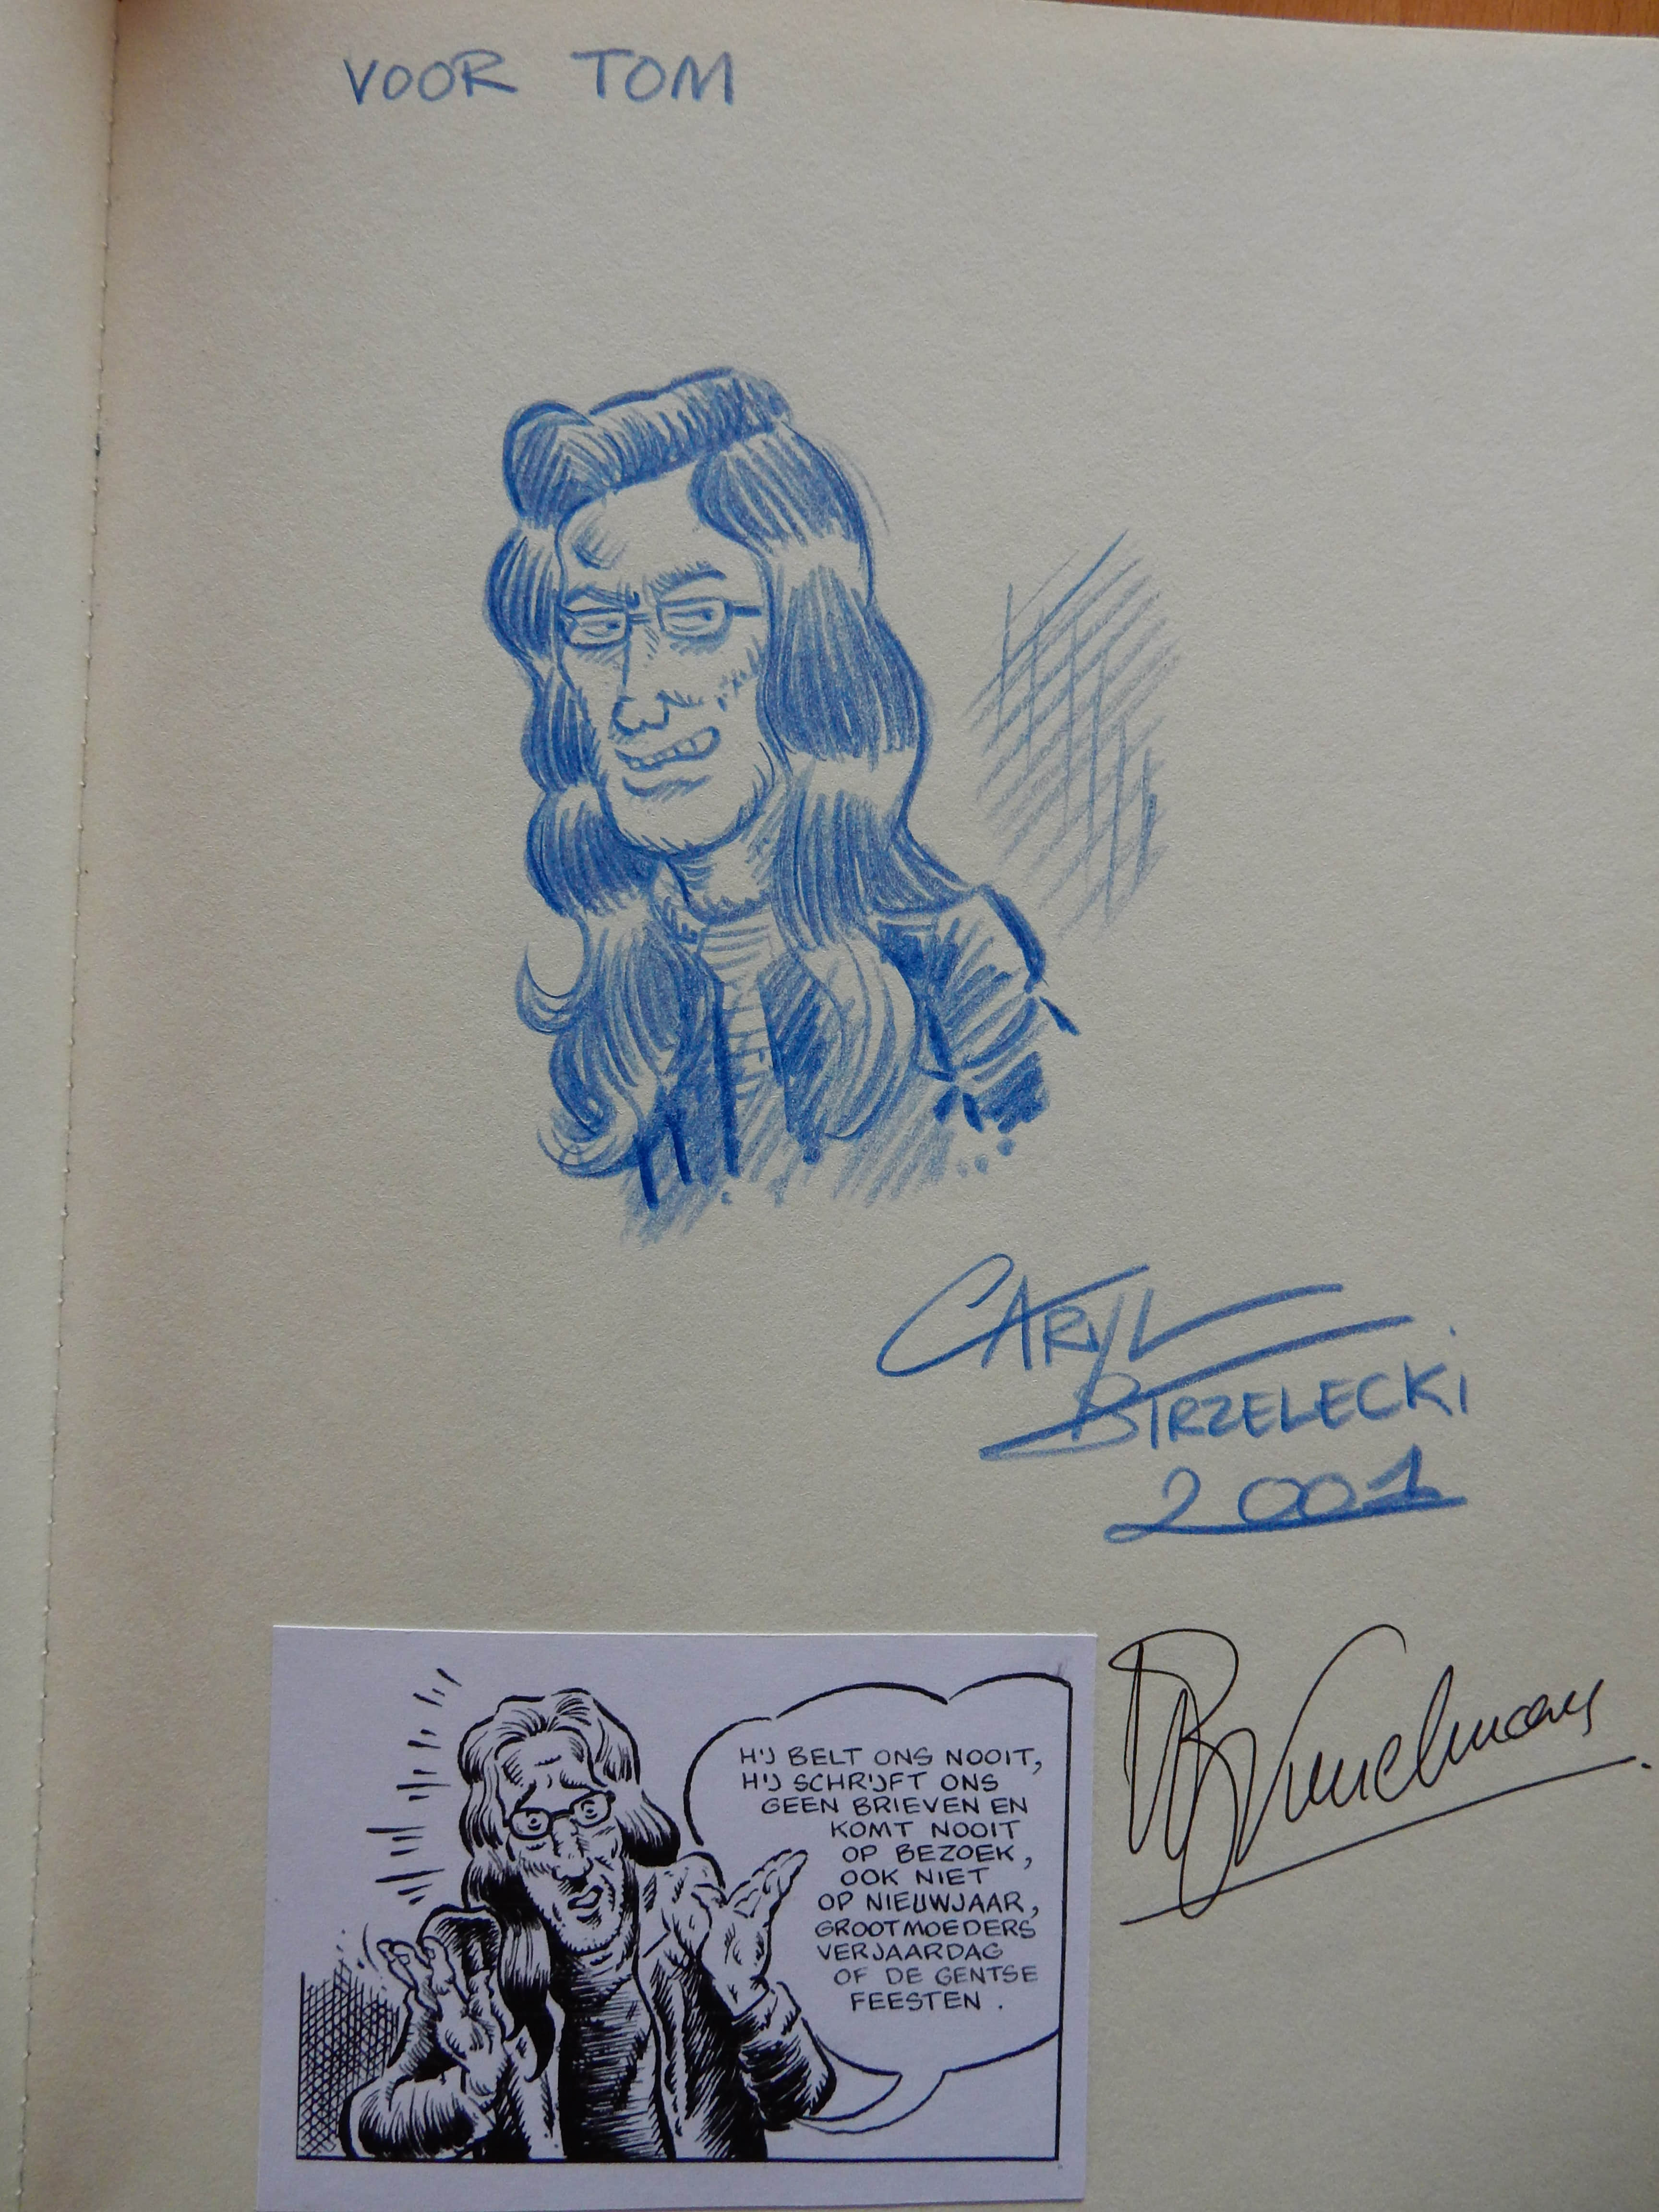 VOOR TOM
CARYL
STRZELECKI
2001
HIJ BELT ONS NOOIT,
HIJ SCHRIJFT ONS
GEEN BRIEVEN EN
KOMT NOOIT
OP BEZOEK,
OOK NIET
OP NIEUWJAAR,
GROOTMOEDERS
VERJAARDAG
OF DE GENTSE
FEESTEN.